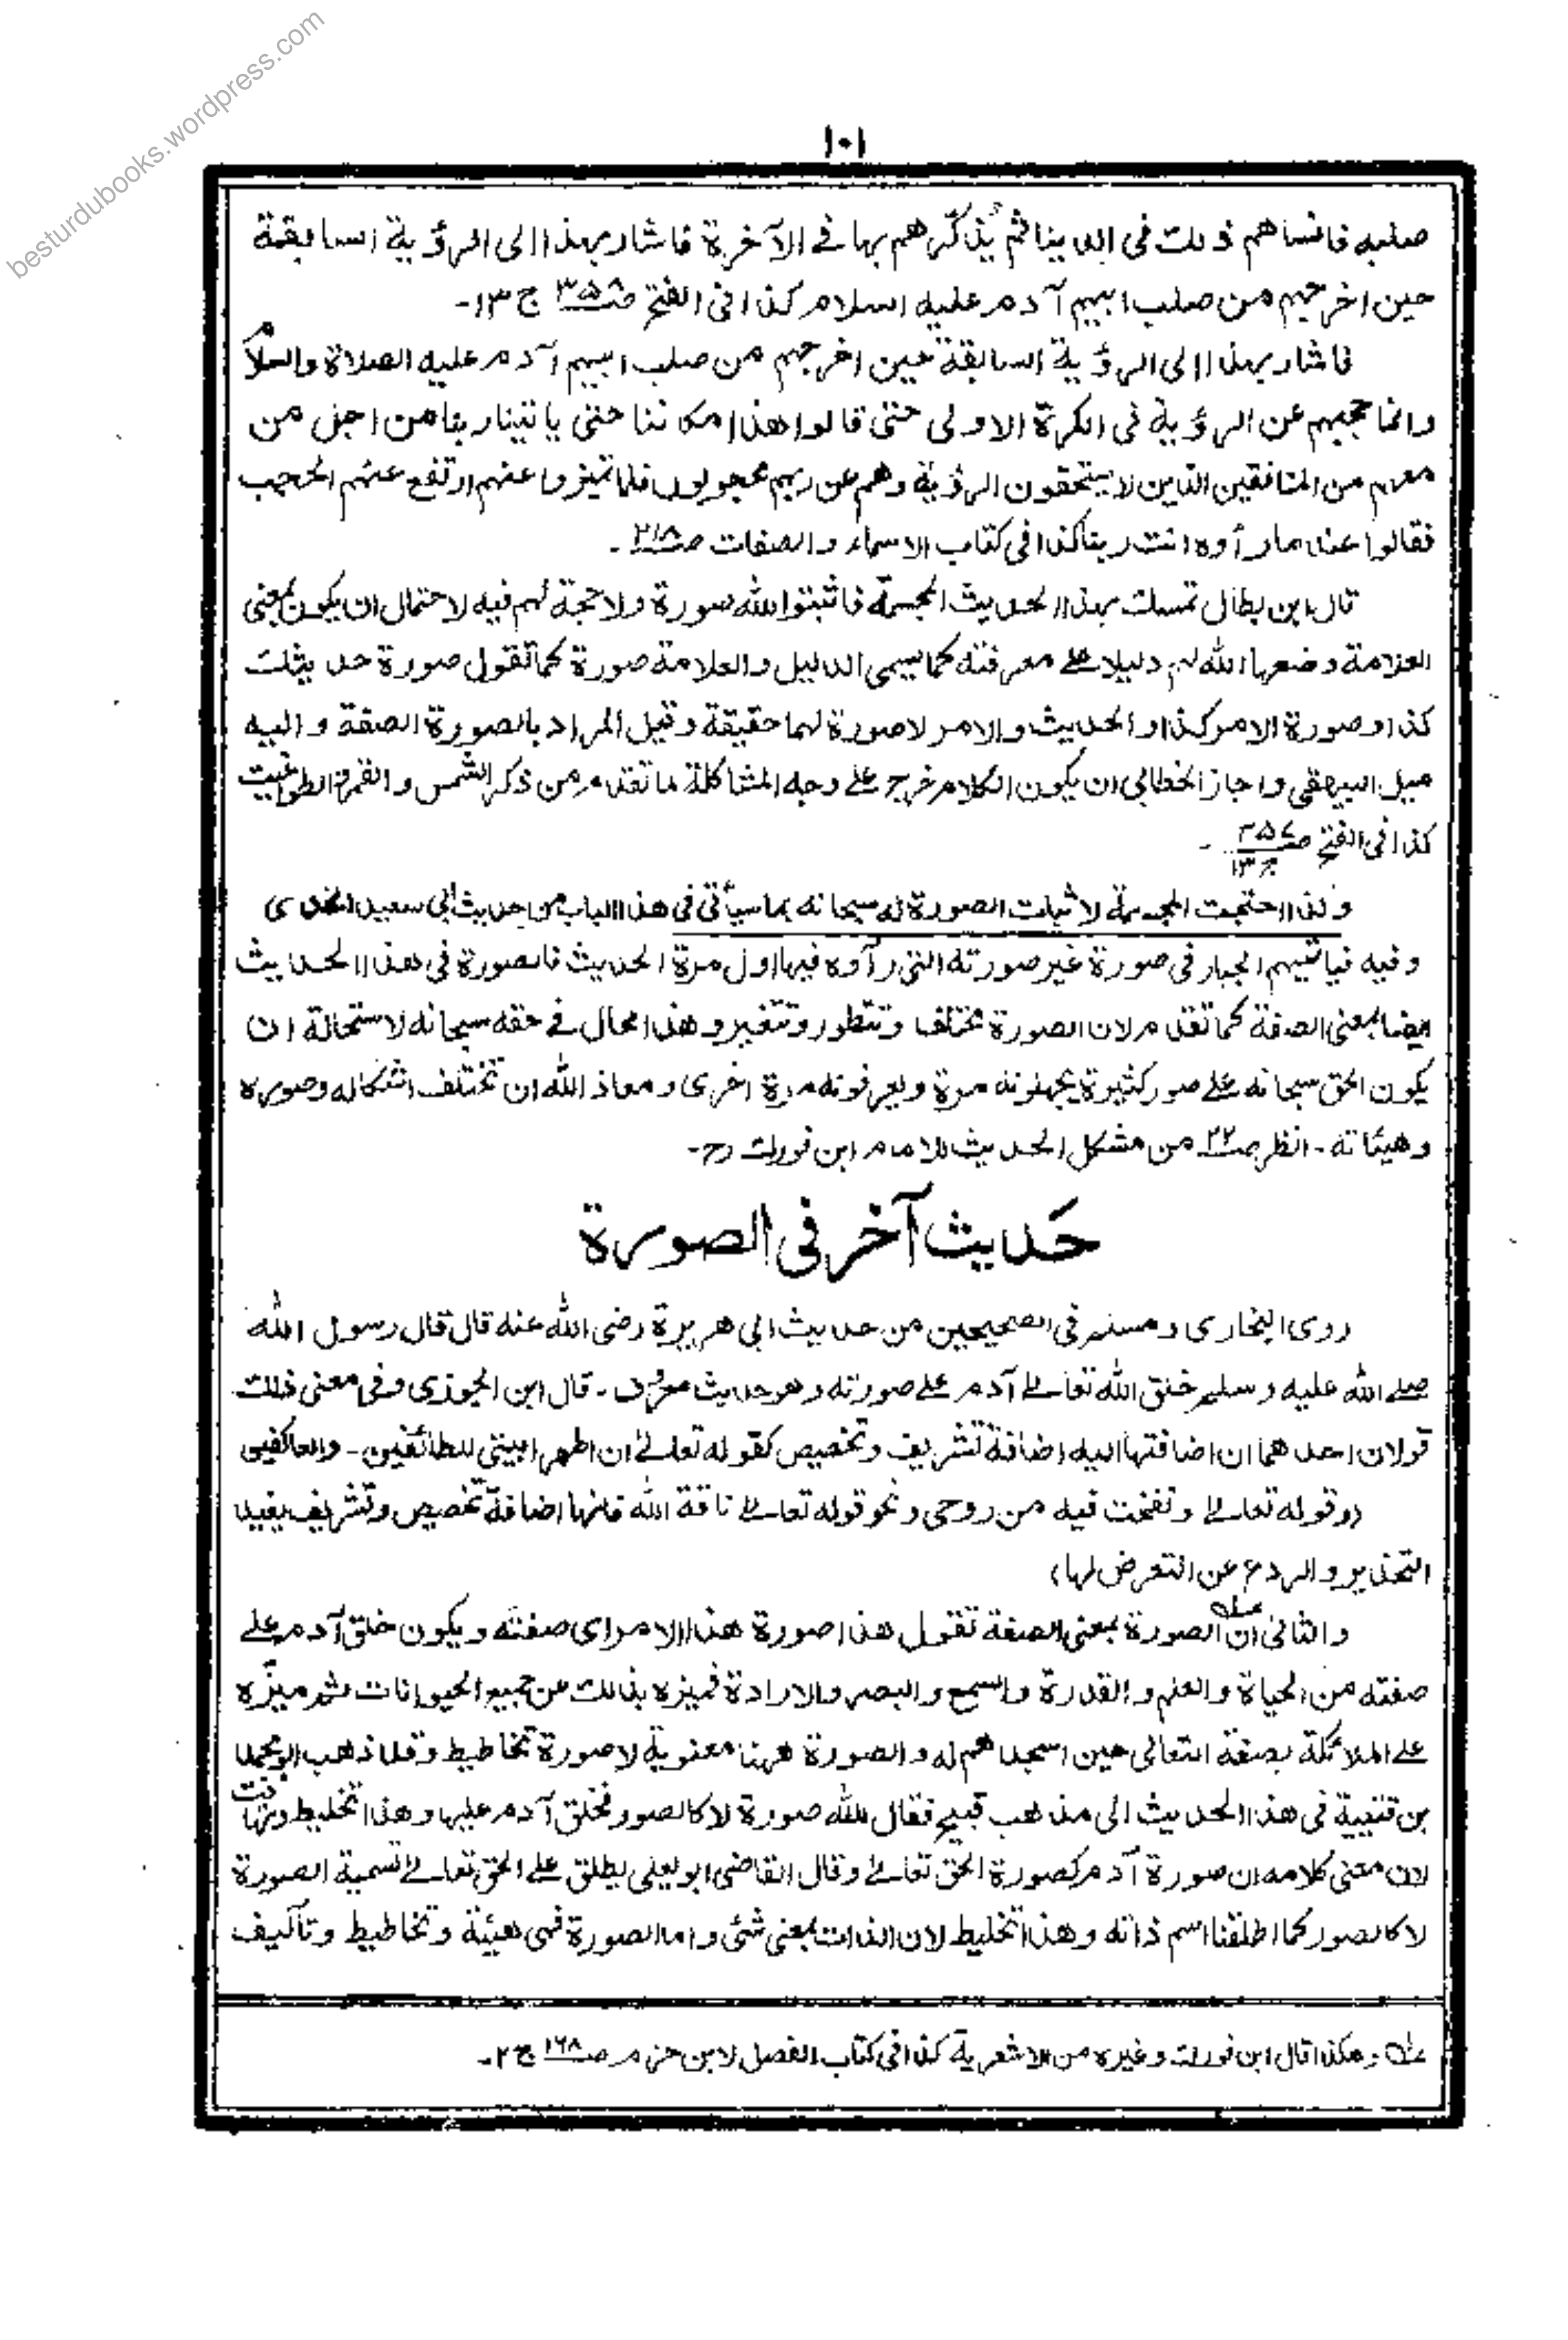 besturdubooks.wordpress.com
١٠١
صلبه فانساهم ذلك فى الدينا ثم يُذكّرهم بها فے الآخرة فاشار بهذا الى الرؤية السابقة
حين اخرجهم من صلب ابيهم آدم عليه السلام كذا فى الفتح ص٣٥٨ ج ١٣-
فاشار بهذا الى الرؤية السابقة حين اخرجهم من صلب ابيهم آدم عليه الصلاة والسلام
وانما حجبهم عن الرؤية فى الكرة الاولى حتى قالوا هذا مكاننا حتى ياتينا ربنا من اجل من
معهم من المنافقين الذين لا يستحقون الرؤية وهم عن ربهم محجوبون فلما تميزوا عنهم ارتفع عنهم الحجب
فقالوا عند ما رأوه انت ربنا كذا فى كتاب الاسماء والصفات ص٢١٨ -
قال ابن بطال تمسك بهذا الحديث المجسمة فاثبتوا لله صورة ولا حجة لهم فيه لاحتمال ان يكون بمعنى
العلامة وضعها الله لهم دليلا علے معرفته كما يسمى الدليل والعلامة صورة كما تقول صورة حديثك
كذا وصورة الامر كذا والحديث والامر لا صورة لهما حقيقة وقيل المراد بالصورة الصفة واليه
ميل البيهقى واجاز الخطابى ان يكون الكلام خرج علے وجه المشاكلة لما تقدم من ذكر الشمس والقمر والطواغيت
كذا فى الفتح ص٣٥٧ ج١٣ -
ولذا احتجت المجسمة لاثبات الصورة له سبحانه بما سيأتى فى هذا الباب من حديث أبى سعيد الخدرى
وفيه فياتيهم الجبار فى صورة غير صورته التى رأوه فيها اول مرة الحديث فالصورة فى هذا الحديث
ايضا بمعنى الصفة كما تقدم لان الصورة تختلف وتتطور وتتغير وهذا محال فے حقه سبحانه لاستحالة ان
يكون الحق سبحانه علے صور كثيرة يجهلونه مرة ويعرفونه مرة اخرى ومعاذ الله ان تختلف اشكاله وصوره
وهيئاته - انظر ص٢٢ من مشكل الحديث للامام ابن فورك رح -
حَديث آخر فى الصورة
روى البخارى ومسلم فى الصحيحين من حديث ابى هريرة رضى الله عنه قال قال رسول الله
صلے الله عليه وسلم خلق الله تعالےٰ آدم علے صورته وهو حديث معروف - قال ابن الجوزى وفى معنى ذلك
قولان احدهما ان اضافتها اليه اضافة تشريف وتخصيص كقوله تعالےٰ ان اطهرا بيتى للطائفين - والعاكفين
(وقوله تعالےٰ ونفخت فيه من روحى ونحو قوله تعالےٰ ناقة الله فانها اضافة تخصيص وتشريف يفيد
التحذير والردع عن التعرض لها)
والثانى ان الصورة بمعنى الصفة تقول هذا صورة هذا الامر اى صفته ويكون خلق آدم علے
صفته من الحياة والعلم والقدرة والسمع والبصر والارادة فميزه بذالك عن جميع الحيوانات ثم ميّزه
علے الملائكة بصفة التعالى حين اسجدهم له والصورة ههنا معنوية لا صورة تخاطيط وقد ذهب ابو محمد
بن قتيبة فى هذا الحديث الى مذهب قبيح فقال لله صورة لا كالصور فخلق آدم عليها وهذا تخليط وتهافت
لان معنى كلامه ان صورة آدم كصورة الحق تعالےٰ وقال القاضى ابو يعلى يطلق علے الحق تعالےٰ تسمية الصورة
لا كالصور كما اطلقنا اسم ذاته وهذا تخليط لان الذات بمعنى شئى واما الصورة فهى هيئة وتخاطيط وتأليف
عله وهكذا قال ابن فورك وغيره من الاشعرية كذا فى كتاب الفصل لابن حزم ص١٦٨ ج ٢-